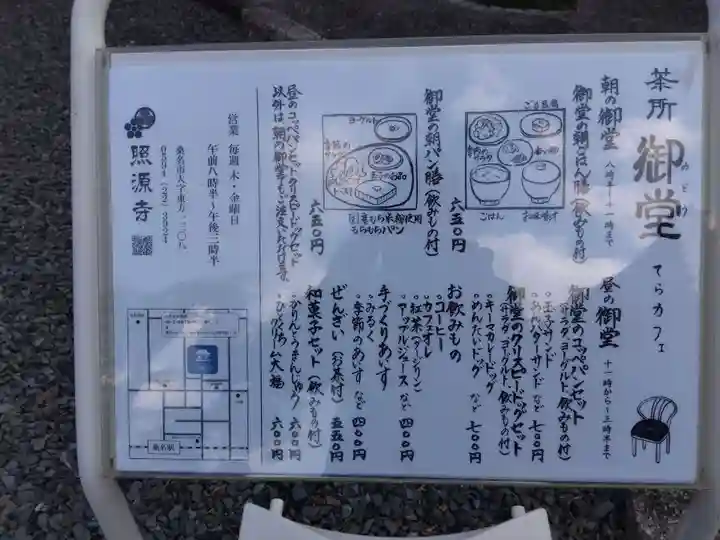 茶所
御堂
みどう
てらカフェ
朝の御堂 八時半〜十一時まで
御堂の朝ごはん膳(飲みもの付)
ごま豆腐
ごはん
お味噌汁
六五〇円
御堂の朝パン膳(飲みもの付)
ヨーグルト
トースト
もちもちパン
六五〇円
昼のコッペパンセットクリスピードッグセット
以外は、朝の御堂でもご注文いただけます。
昼の御堂 十一時から〜三時半まで
御堂のコッペパンセット
(サラダ、ヨーグルト、飲みもの付)
・玉子サンド
・あんバターサンド など 七〇〇円
御堂のクリスピードッグセット
(サラダ、ヨーグルト、飲みもの付)
・キーマカレードッグ
・めんたいドッグ など 七〇〇円
お飲みもの
・コーヒー
・カフェオレ
・紅茶(ダージリン)
・アップルジュース など 四〇〇円
手づくりあいす
・みるく
・季節のあいす など 四〇〇円
ぜんざい (お茶付) 五五〇円
和菓子セット (飲みもの付)
・みりんまんじゅう 六〇〇円
大福 六〇〇円
営業 毎週 木・金曜日
午前八時半〜午後三時半
照源寺
桑名市大字東方一三〇八
0594(22)3921
桑名駅